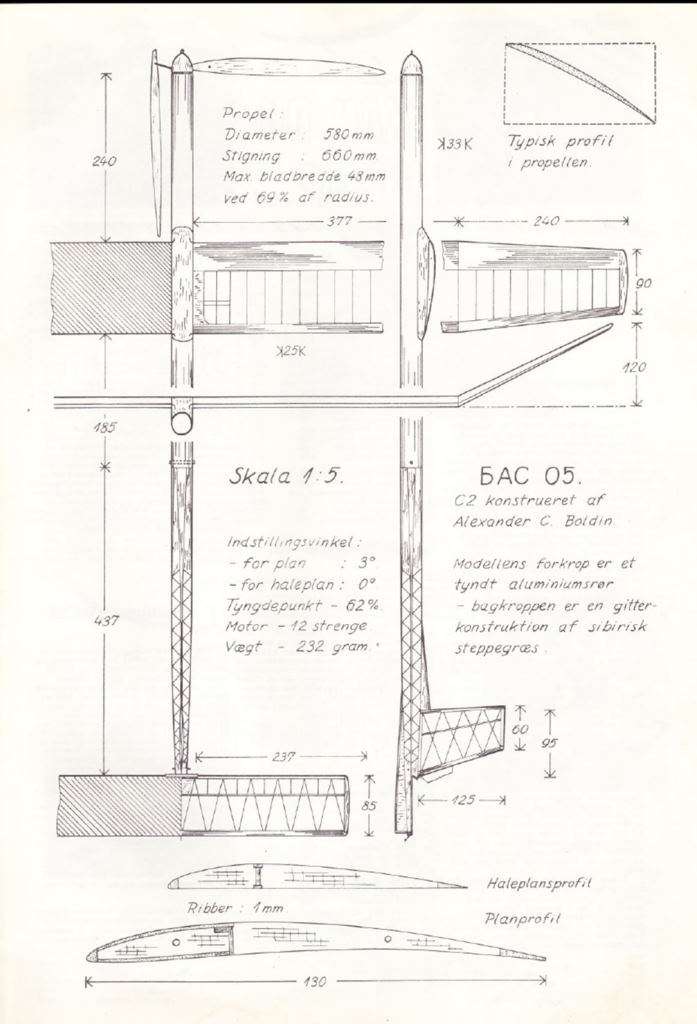 Propel:
Diameter: 580mm
Stigning : 660mm
Max. bladbredde 48mm
ved 69% af radius.
Typisk profil
i propellen.
33
240
377
240
90
25
120
185
Skala 1:5.
БАС 05.
C2 konstrueret af
Alexander C. Boldin.
Indstillingsvinkel:
- for plan : 3°
- for haleplan: 0°
Tyngdepunkt - 62%.
Motor - 12 strenge.
Vægt - 232 gram.
Modellens forkrop er et
tyndt aluminiumsrør
- bagkroppen er en gitter-
konstruktion af sibirisk
steppegræs.
437
60
95
237
125
85
Haleplansprofil
Ribber: 1mm.
Planprofil
130